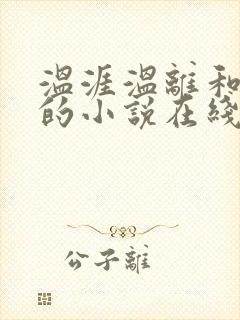 温涯温離和
的小说在綫
公子離